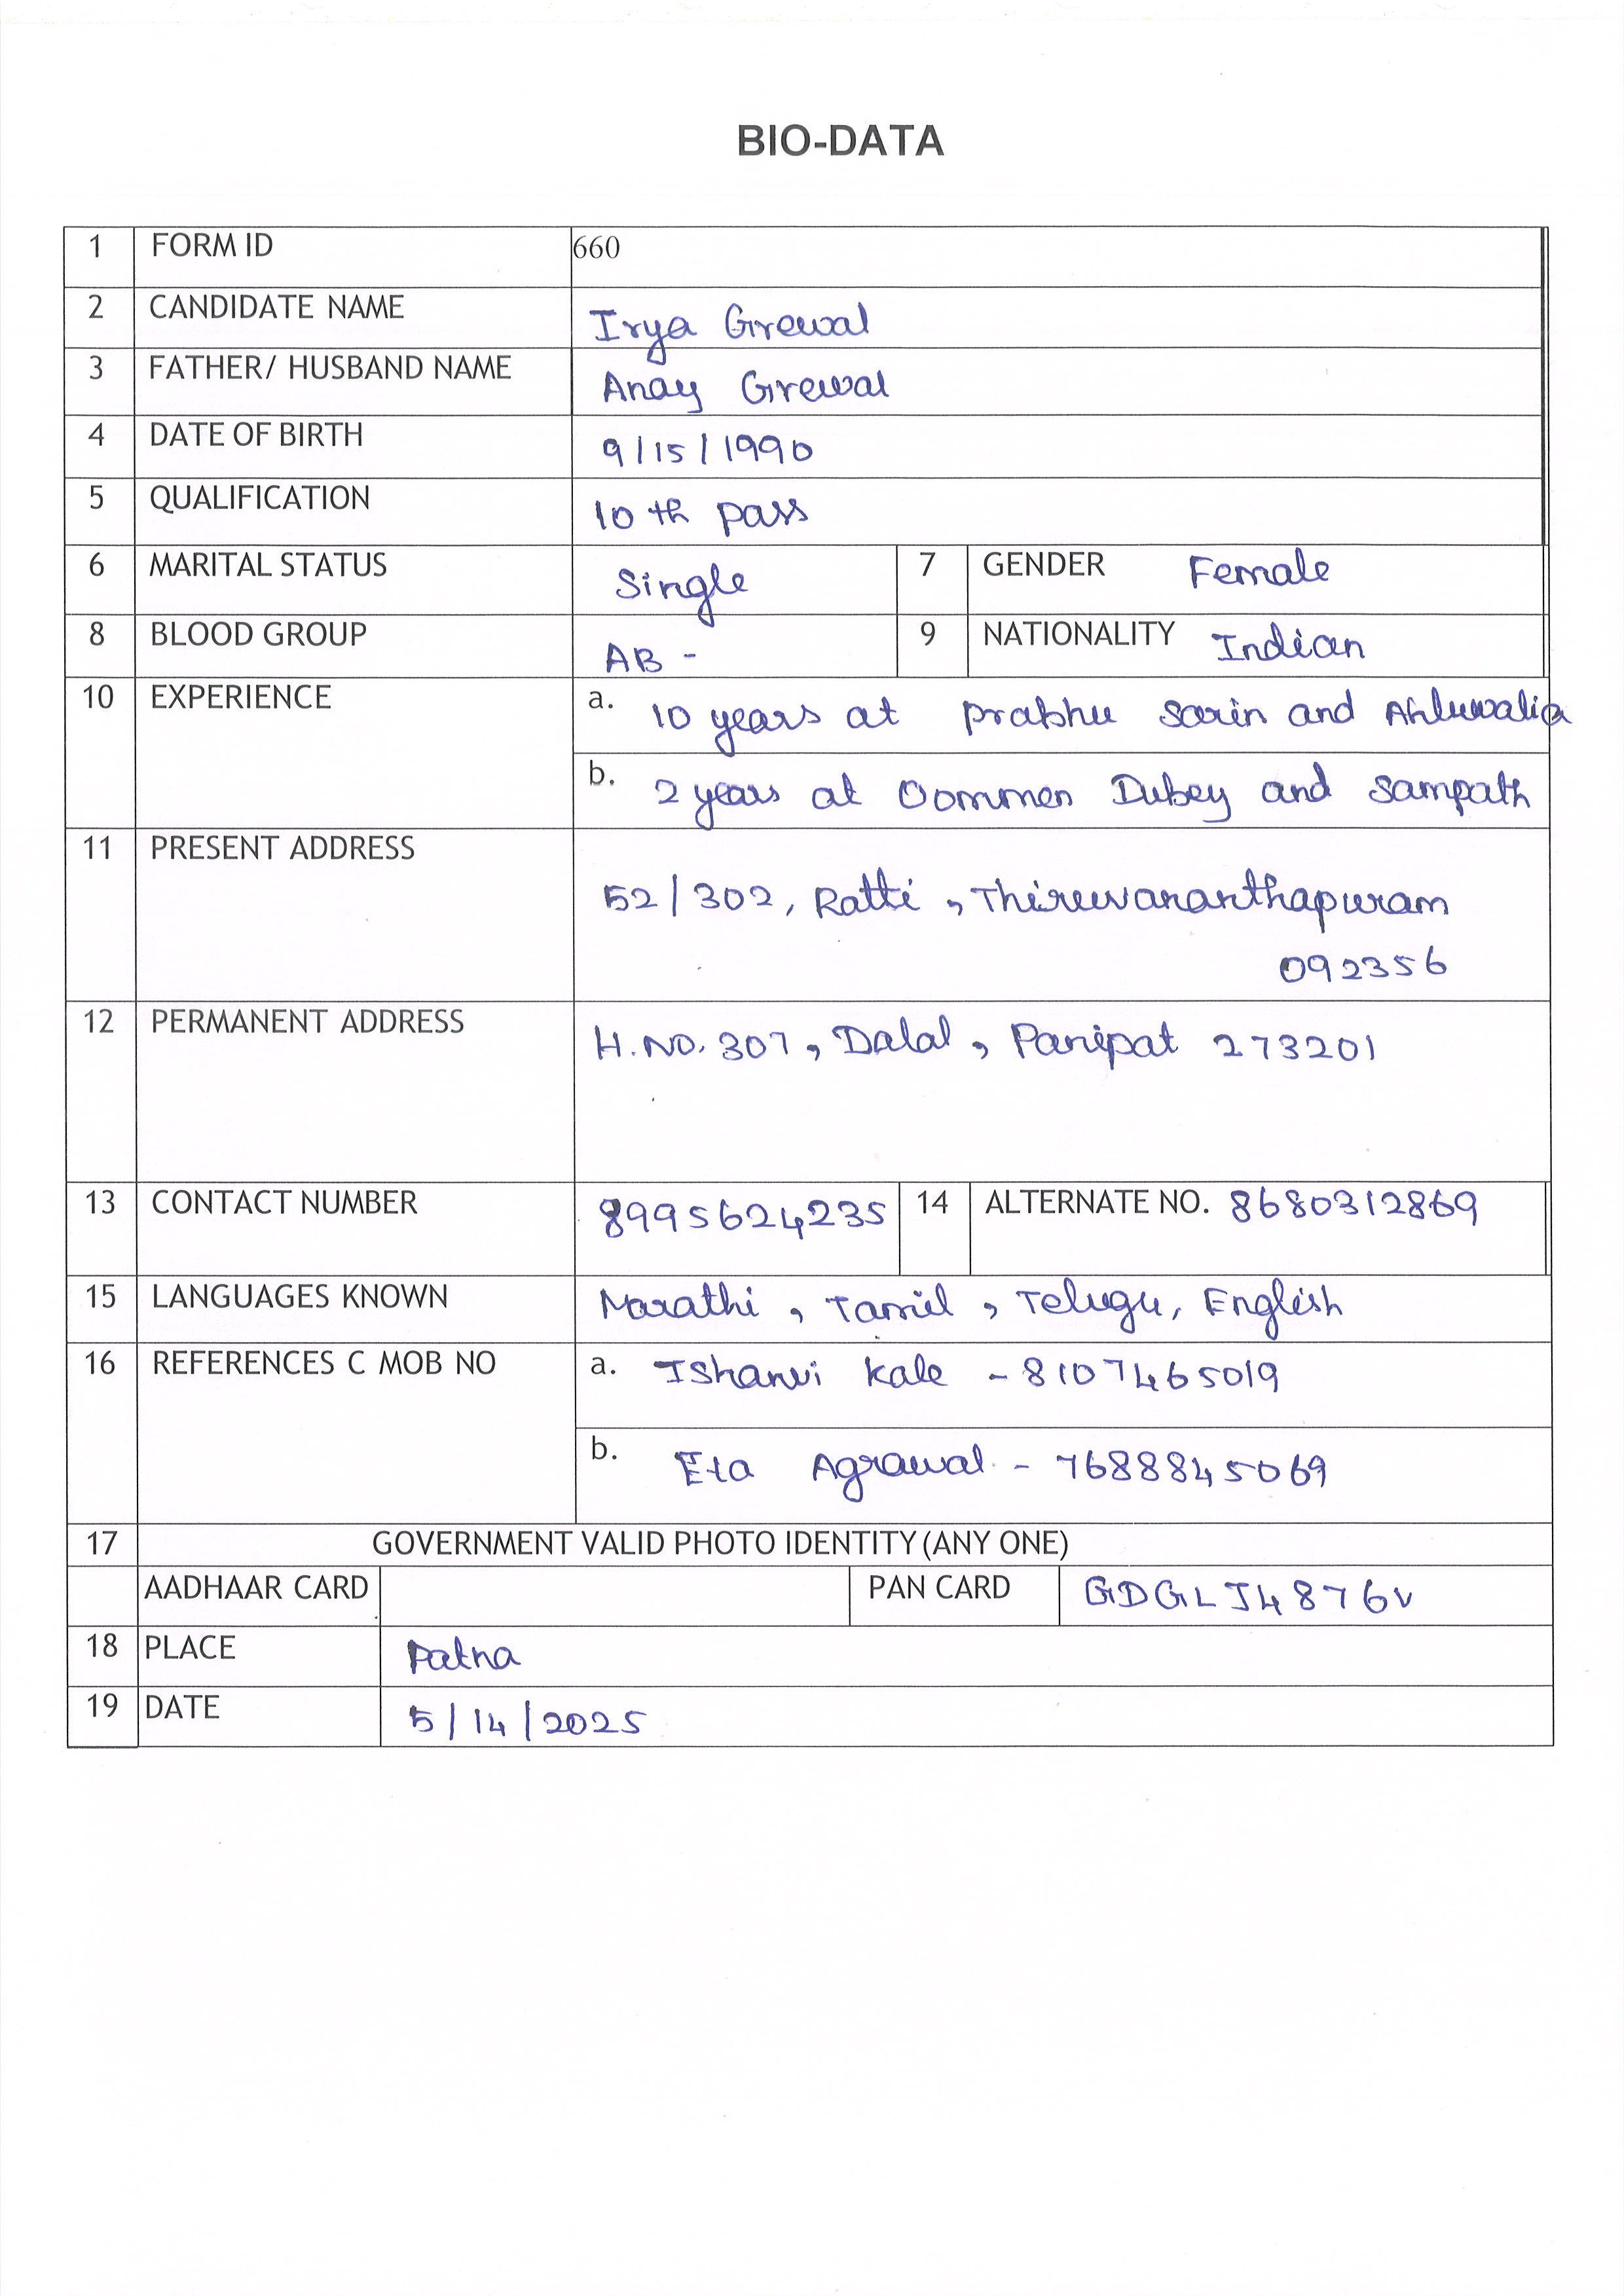 BIO-DATA
1 FORM ID 660
2 CANDIDATE NAME Irya Grewal
3 FATHER/ HUSBAND NAME Anay Grewal
4 DATE OF BIRTH 9/15/1990
5 QUALIFICATION 10 th pass
6 MARITAL STATUS Single 7 GENDER Female
8 BLOOD GROUP AB - 9 NATIONALITY Indian
10 EXPERIENCE a. 10 years at prabhu Sarin and Ahluwalia
b. 2 years at Oommen Dubey and Sampath
11 PRESENT ADDRESS
52/302, Ratti, Thiruvananthapuram
092356
12 PERMANENT ADDRESS H.NO. 307, Dalal, Panipat 273201
13 CONTACT NUMBER 8995624235 14 ALTERNATE NO. 8680312869
15 LANGUAGES KNOWN Marathi, Tamil, Telugu, English
16 REFERENCES C MOB NO a. Ishanvi Kale - 8107465019
b. Eta Agrawal - 7688845069
17 GOVERNMENT VALID PHOTO IDENTITY (ANY ONE)
AADHAAR CARD PAN CARD GDGLJ4876V
18 PLACE Patna
19 DATE 5/14/2025